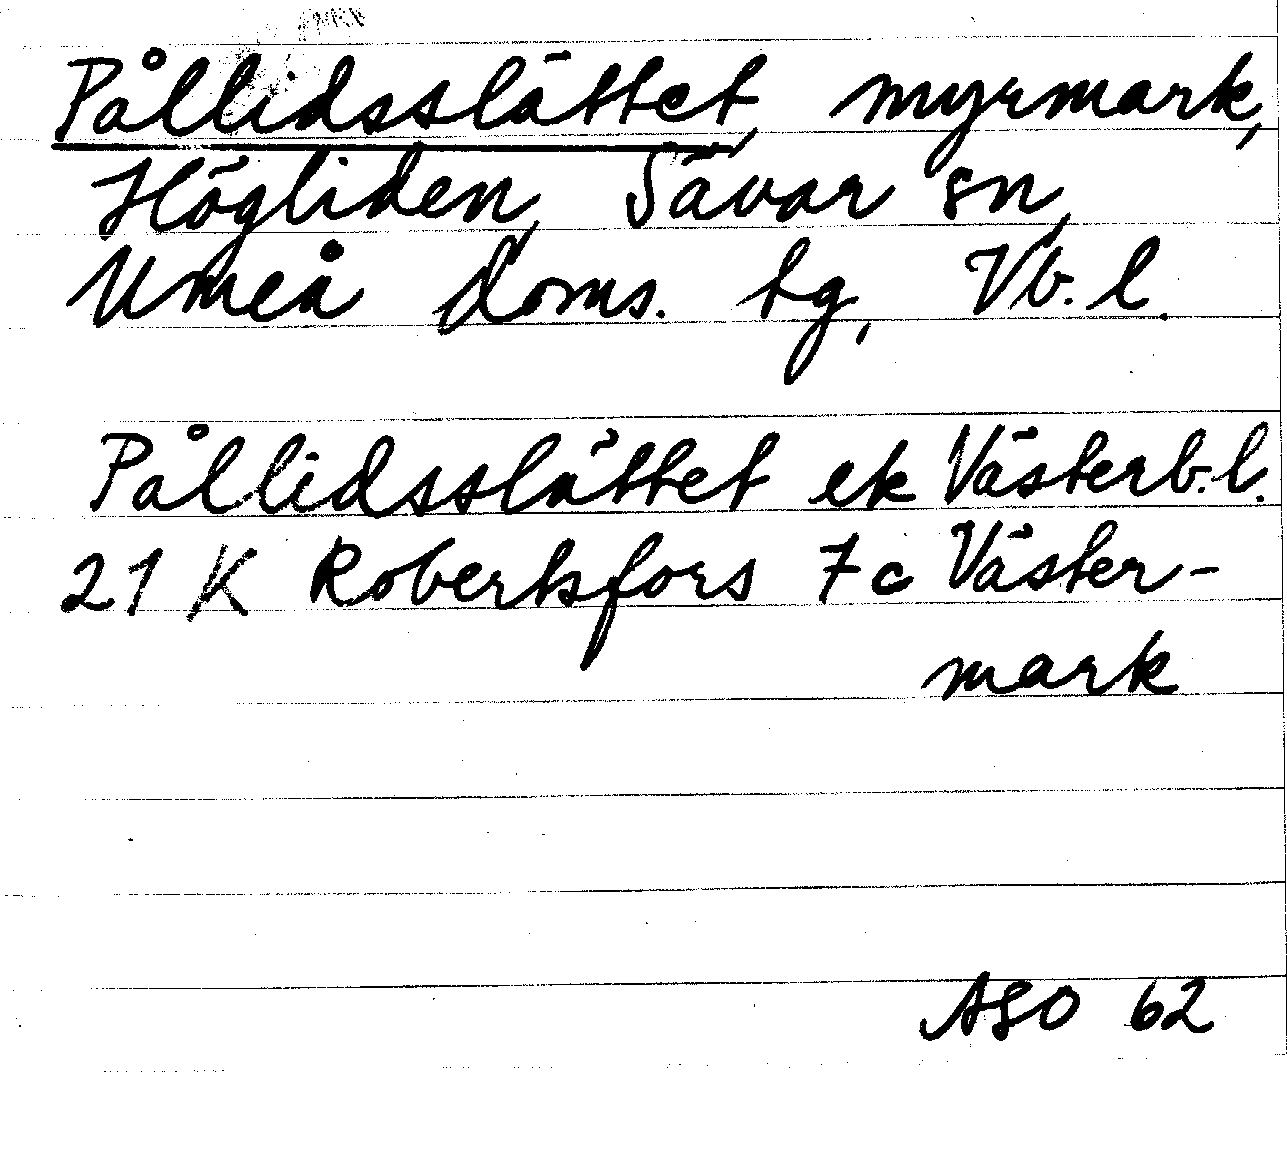 Pållidsslåttet, myrmark,
Högliden, Sävar sn,
Umeå doms. tg, Vb. l.
Pållidsslåttet ek Västerb. l.
21 K Robertsfors 7c Väster-
mark
ASO 62